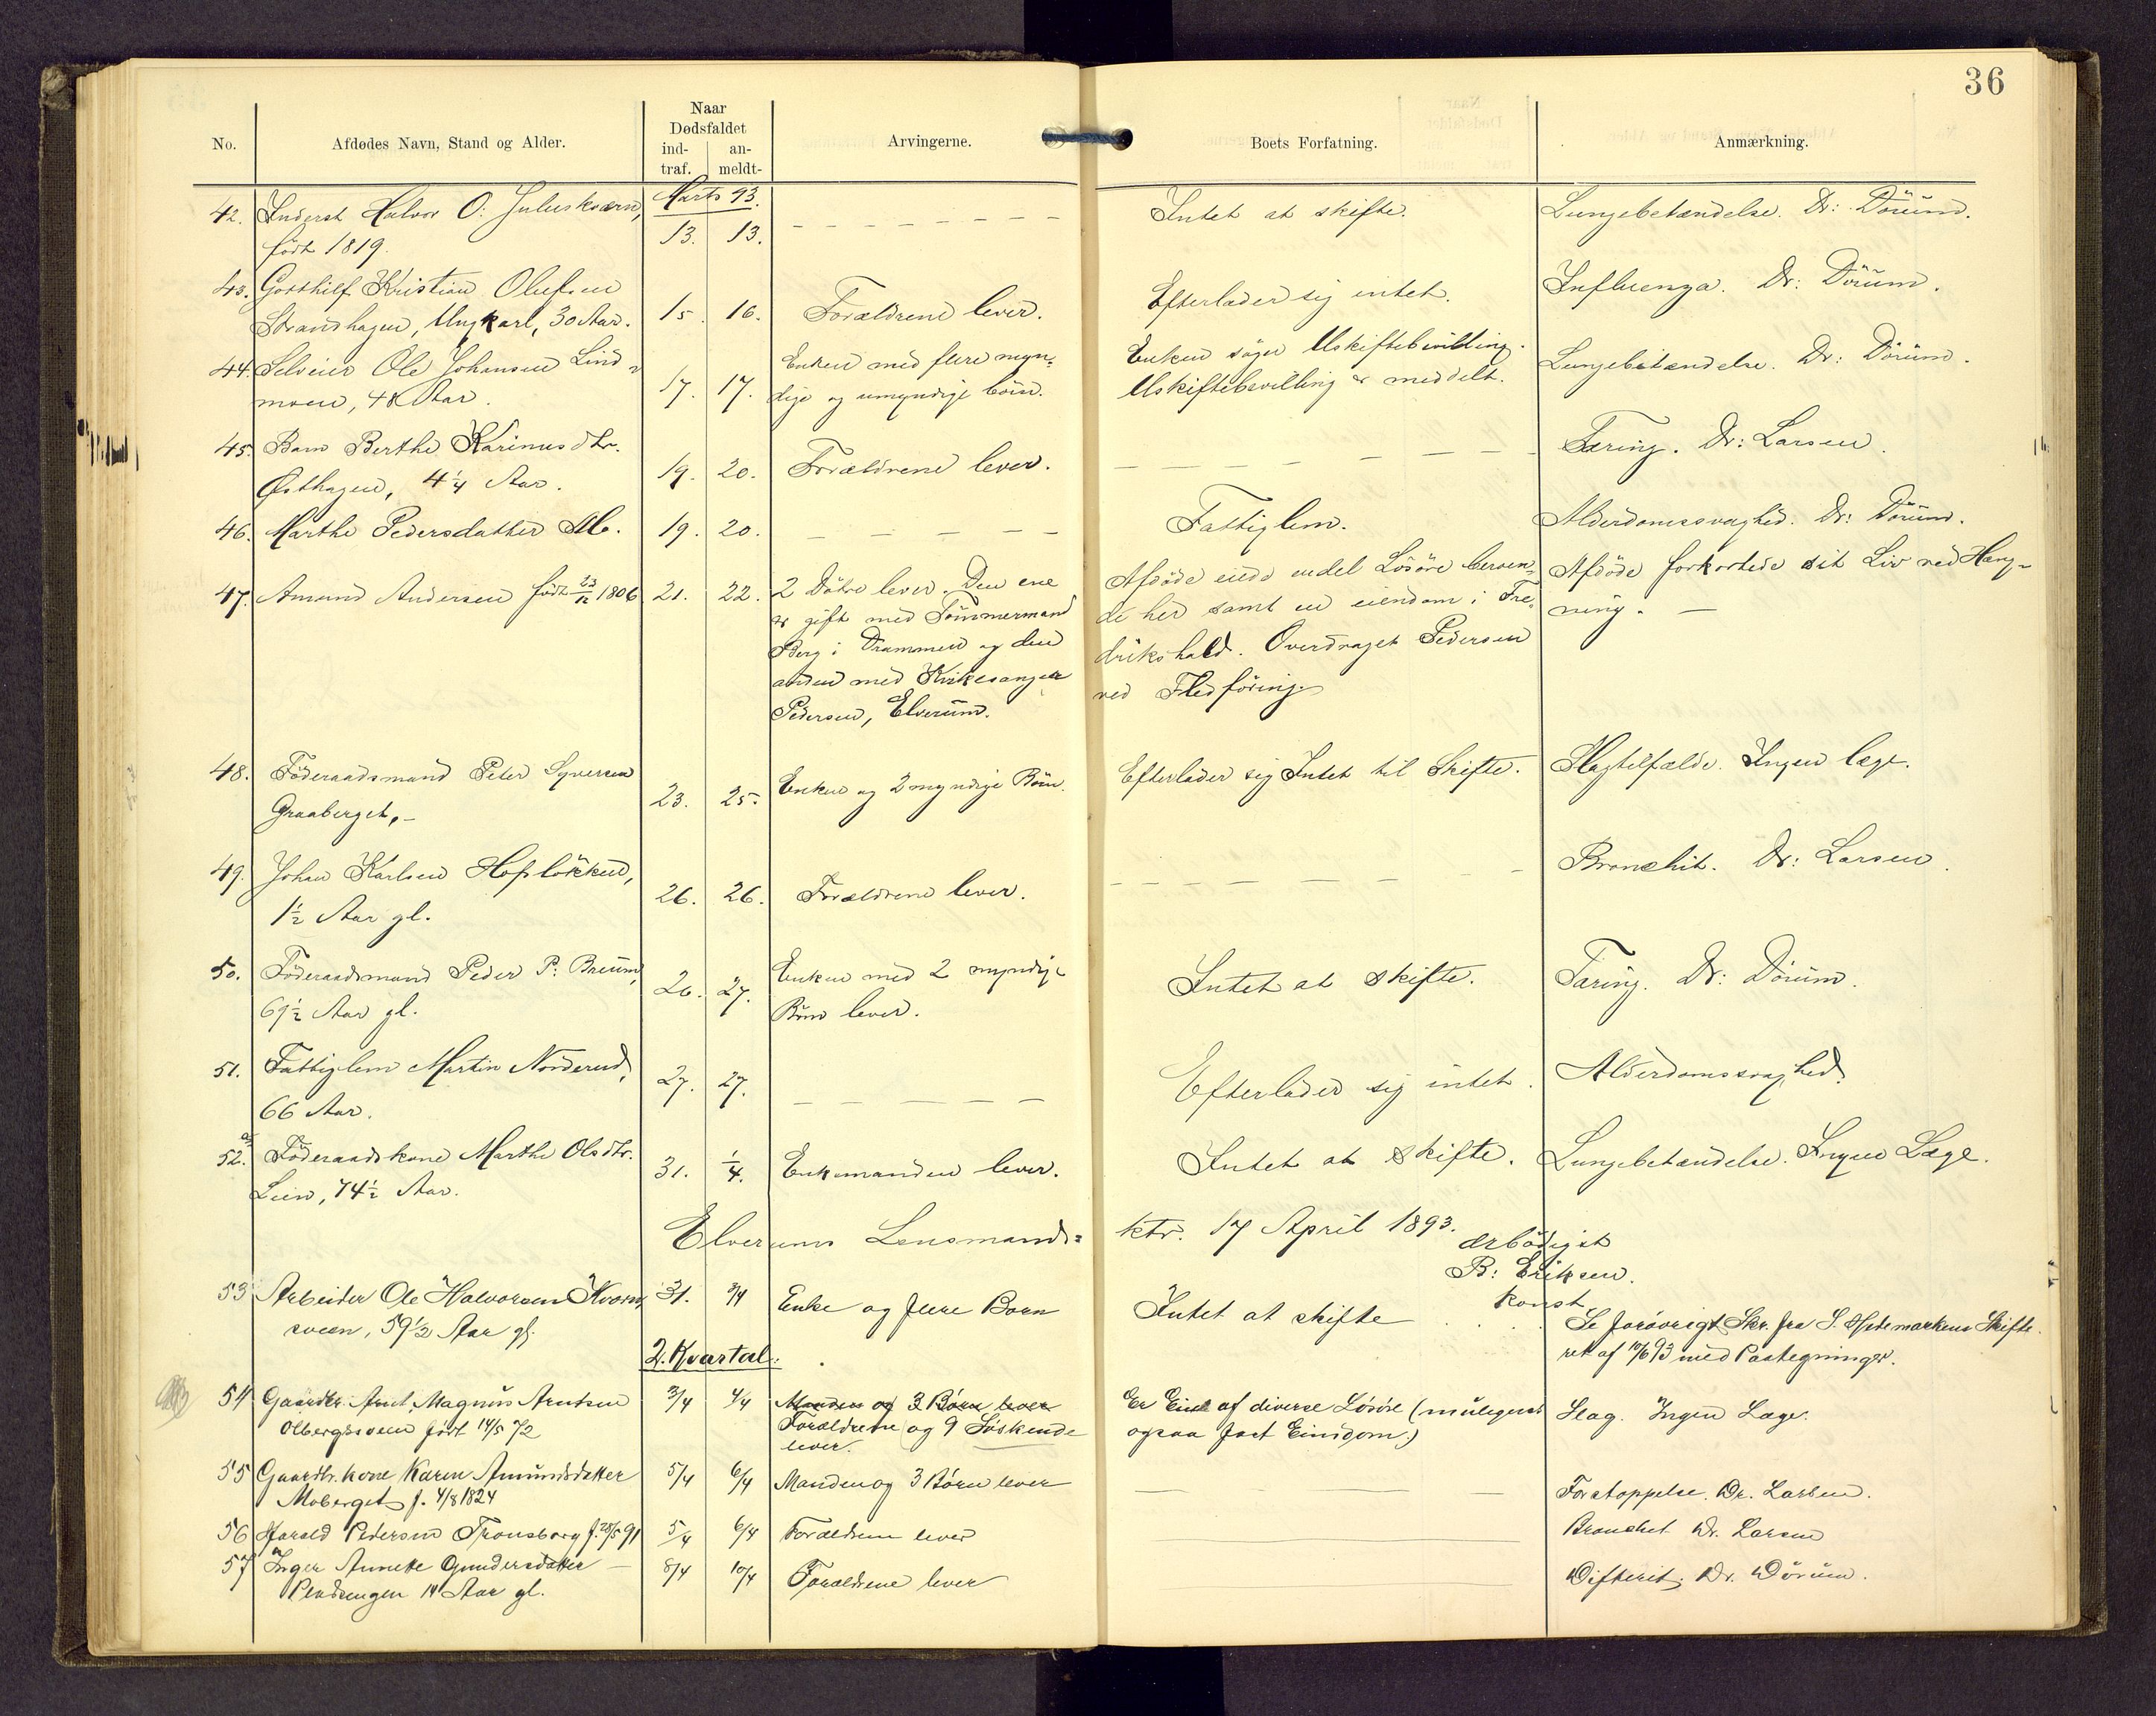 36
No.
Afdødes Navn, Stand og Alder.
Naar
Dødsfaldet
ind-
traf.
an-
meldt-
Arvingerne.
Boets Forfatning.
Anmærkning.
Marts 93.
42. Inderst Halvor O: Juluskværn,
født 1819.
13. 13. – – – – – – –
Intet at skifte.
Lungebetændelse. Dr: Dörum.
43. Gotthilf Kristian Olufsen
Strandhagen, Ungkarl, 30 Aar.
15. 16. Forældrene lever.
Efterlader sig intet.
Influenza. Dr: Dörum.
44. Selveier Ole Johansen Lind-
moen, 48 Aar.
17. 17. Enken med flere myn-
dige og umyndige börn.
Enken söger Uskiftebevilling.
Uskiftebevilling er meddelt.
Lungebetændelse. Dr: Dörum.
45. Barn Berthe Karinusdtr.
Østhagen, 4¼ Aar.
19. 20. Forældrene lever.
– – – – – –
Tæring. Dr: Larsen.
46. Marthe Pedersdatter
19. 20. – – – –
Fattiglem.
Alderdomssvaghed. Dr: Dörum.
47. Amund Andersen født 23/12 1806
21. 22. 2 Døtre lever. Den ene
er gift med Tömmermand
Berg i Drammen og den
anden med Kirkesanger
Pedersen, Elverum.
Afdöde eiede endel Lösöre beroen-
de her samt en eiendom i Fre-
drikshald. Overdraget Pedersen
ved Fledföring.
Afdöde forkortede sit Liv ved Hæng-
ning. –
48. Föderaadsmand Peter Syversen
Graaberget, –
23. 25. Enken og 2 myndige Börn.
Efterlader sig Intet til Skifte.
Slagtilfælde. Ingen læge.
49. Johan Karlsen Hoflökken,
1½ Aar gl.
26. 26. Forældrene lever.
– – – – – –
Bronchit. Dr: Larsen.
50. Föderaadsmand Peder P: Breum,
69½ Aar gl.
26. 27. Enken med 2 myndige
Börn lever.
Intet at skifte.
Tæring. Dr: Dörum.
51. Fattiglem Martin Norderud,
66 Aar.
27. 27. – – – – –
Efterlader sig intet.
Alderdomssvaghed.
52. a Föderaadskone Marthe Olsdtr.
Lien, 74½ Aar.
31. 1/4. Enkemanden lever.
Intet at skifte.
Lungebetændelse. Ingen Læge.
Elverums Lensmands=
ktr. 17 April 1893.
ærbödigst
B: Eriksen.
konst
53 Arbeider Ole Halvorsen
sveen, 59½ Aar gl.
31. Enke og flere Børn
Intet at skifte . . .
Se forøvrigt Skr. fra S. Hedemarkens Skifte
ret af 10/6 93 med Paategninger.
2. Kvartal.
54 Gaardbr. Arnt Magnus Arntsen
Olbergsveen født 14/5 72
3/4 4/4 Manden og 3 Børn lever
Forældrene og 9 Søskende
lever.
Er Eier af diverse Løsøre (muligens
ogsaa fast Eiendom.)
Slag. Ingen Læge.
55 Gaardbr. kone Karen Amundsdatter
Moberget f. 4/8 1824
5/4 6/4 Manden og 3 Børn lever
Forstoppelse. Dr. Larsen.
56 Harald Pedersen Transberg f. 25/5 91
5/4 6/4 Forældrene lever
Bronchit Dr. Larsen
57 Inger Annette Gundersdatter –
14 Aar gl.
8/4 10/4 Forældrene lever
Difterit. Dr. Dörum.